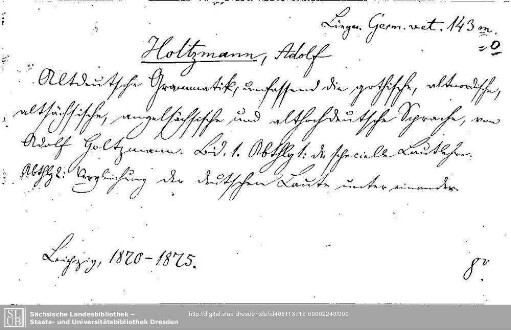 Lingu. Germ. vet. 143 m.
= 0
Holtzmann, Adolf
Altdeutsche Grammatik, umfassend die gothische, altnordische,
altsächsische, angelsächsische und althochdeutsche Sprache, von
Adolf Holtzmann. Bd. 1. Abthlg 1: die specielle Lautlehre.
Abthlg 2: Vergleichung der deutschen Laute unter einander
Leipzig, 1870-1875.
8º
Sächsische Landesbibliothek –
Staats- und Universitätsbibliothek Dresden